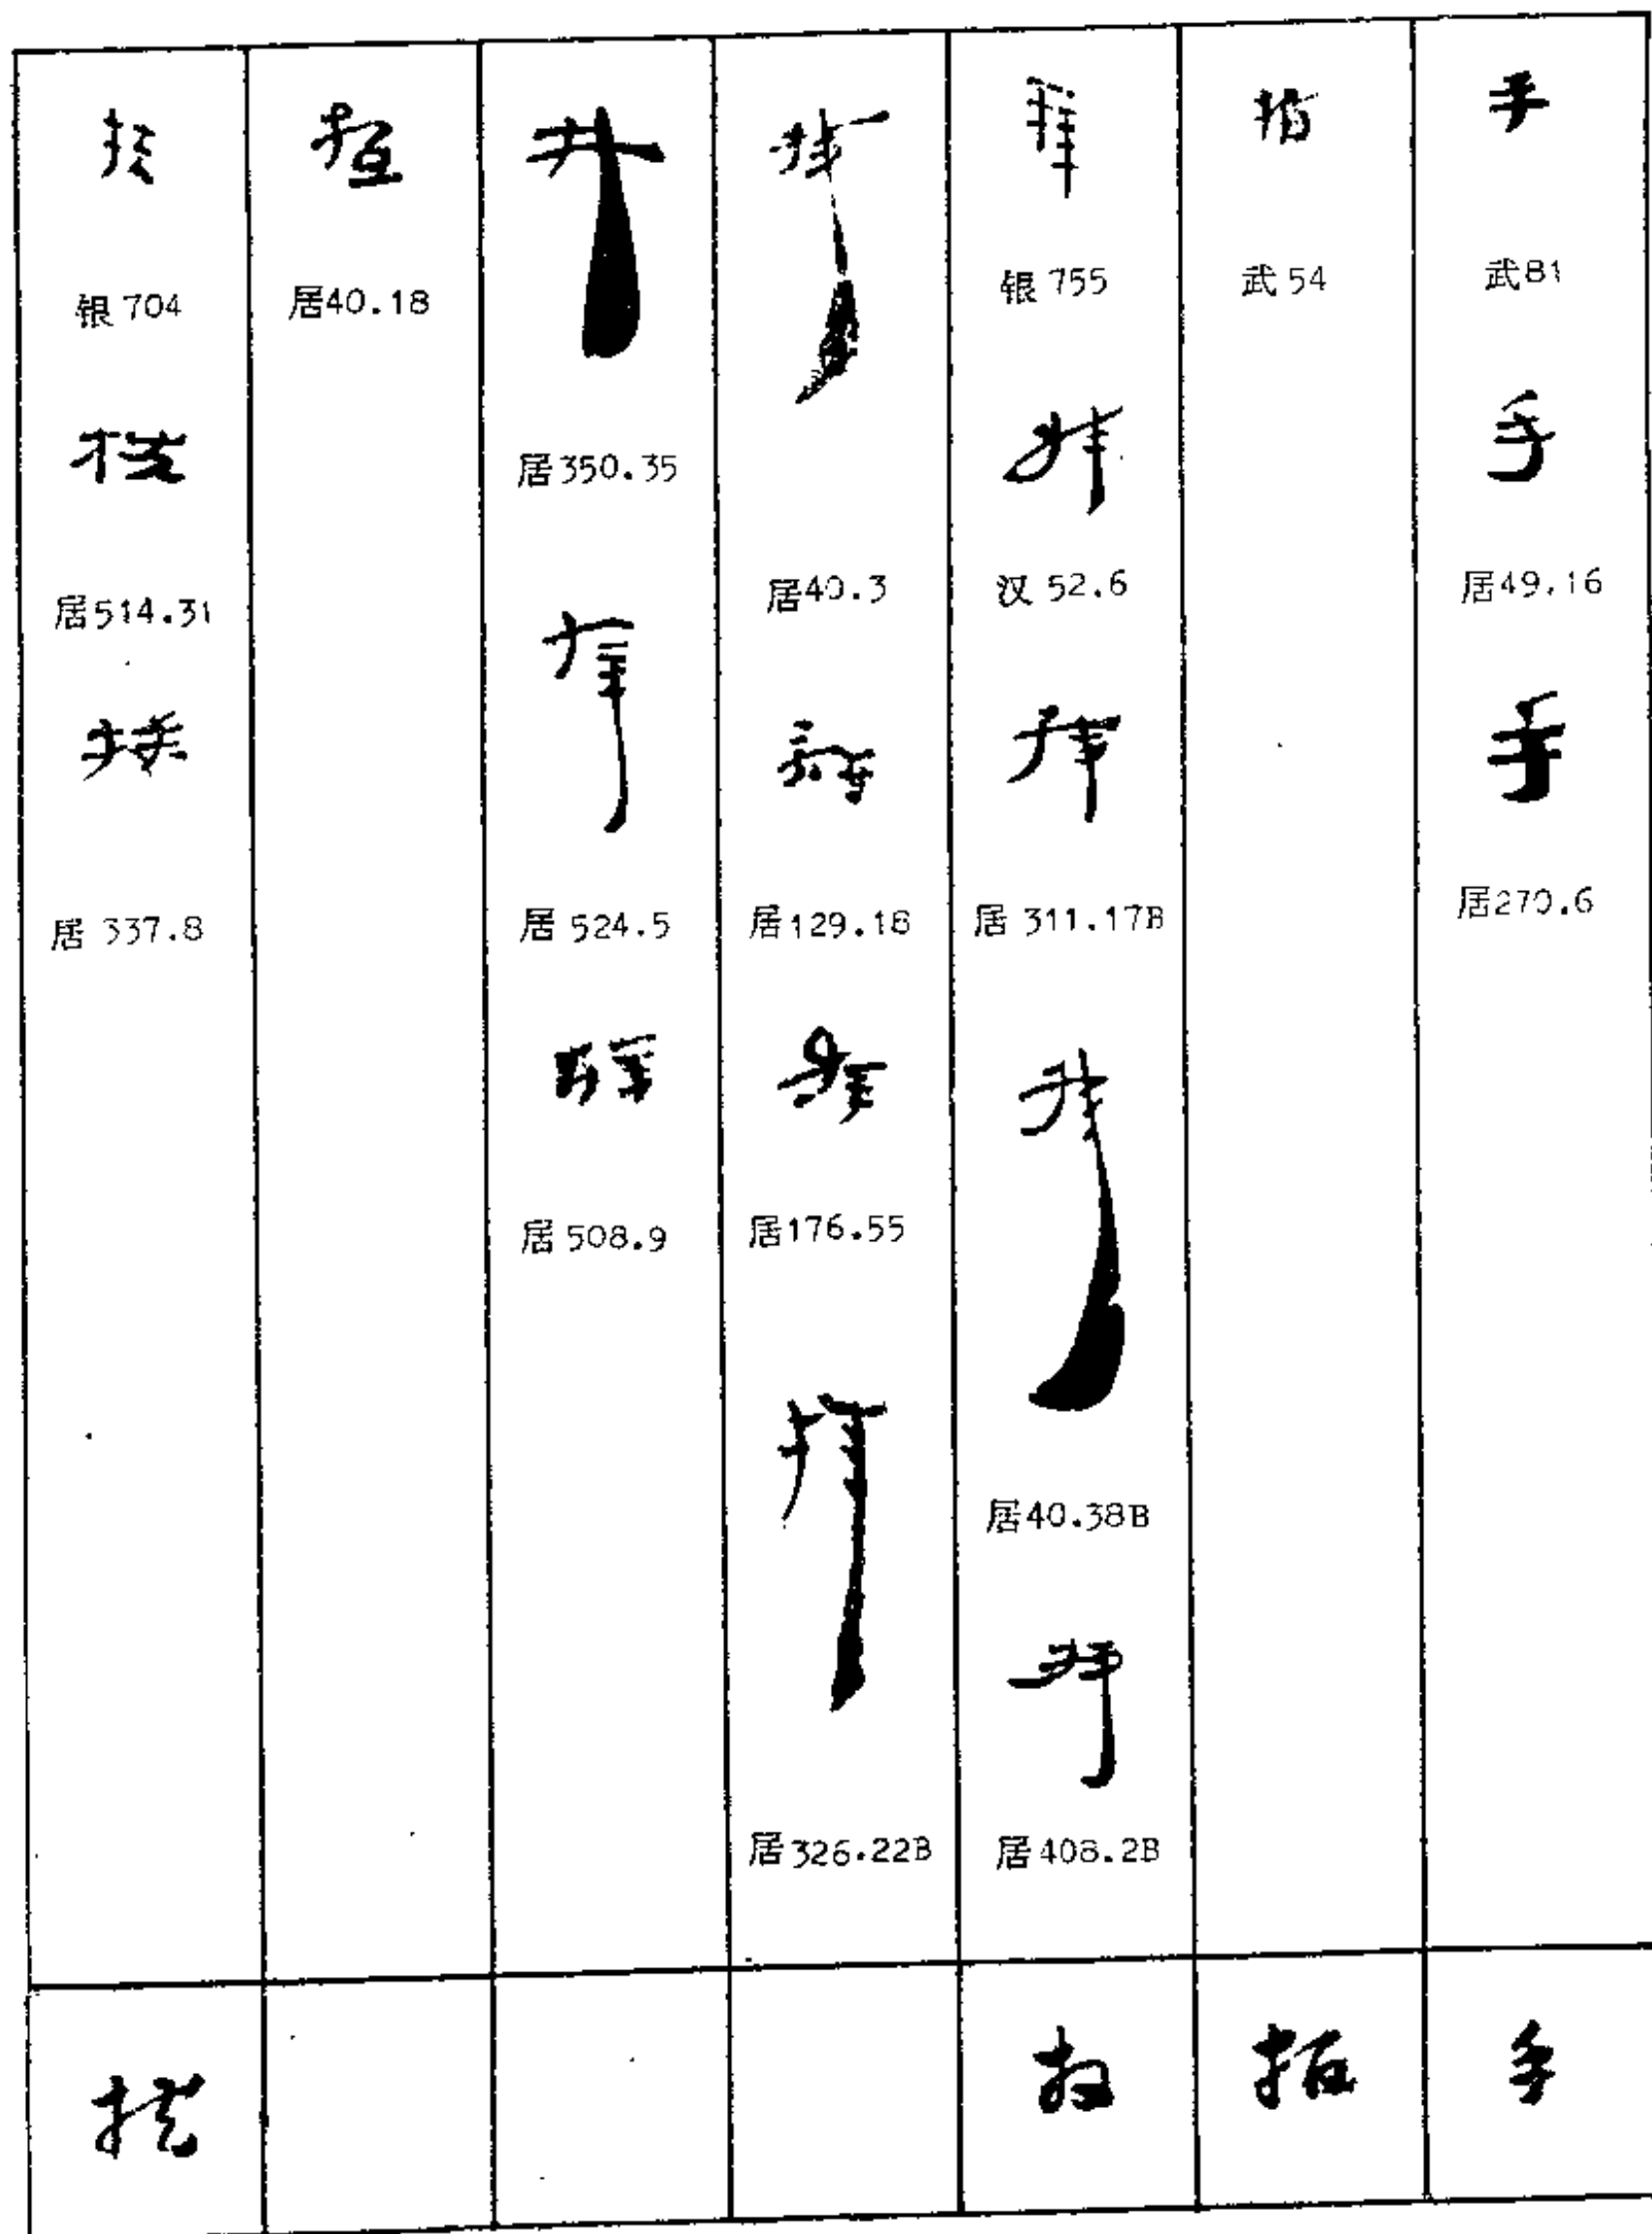 手
武81
手
居49.16
手
居270.6
手
指
武54
指
拜
银755
拜
汉52.6
拜
居311.17B
拜
居40.38B
拜
居408.2B
拜
居40.3
拜
居129.18
拜
居176.55
拜
居326.22B
拜
居350.35
拜
居524.5
拜
居508.9
居40.18
银704
居514.31
居337.8